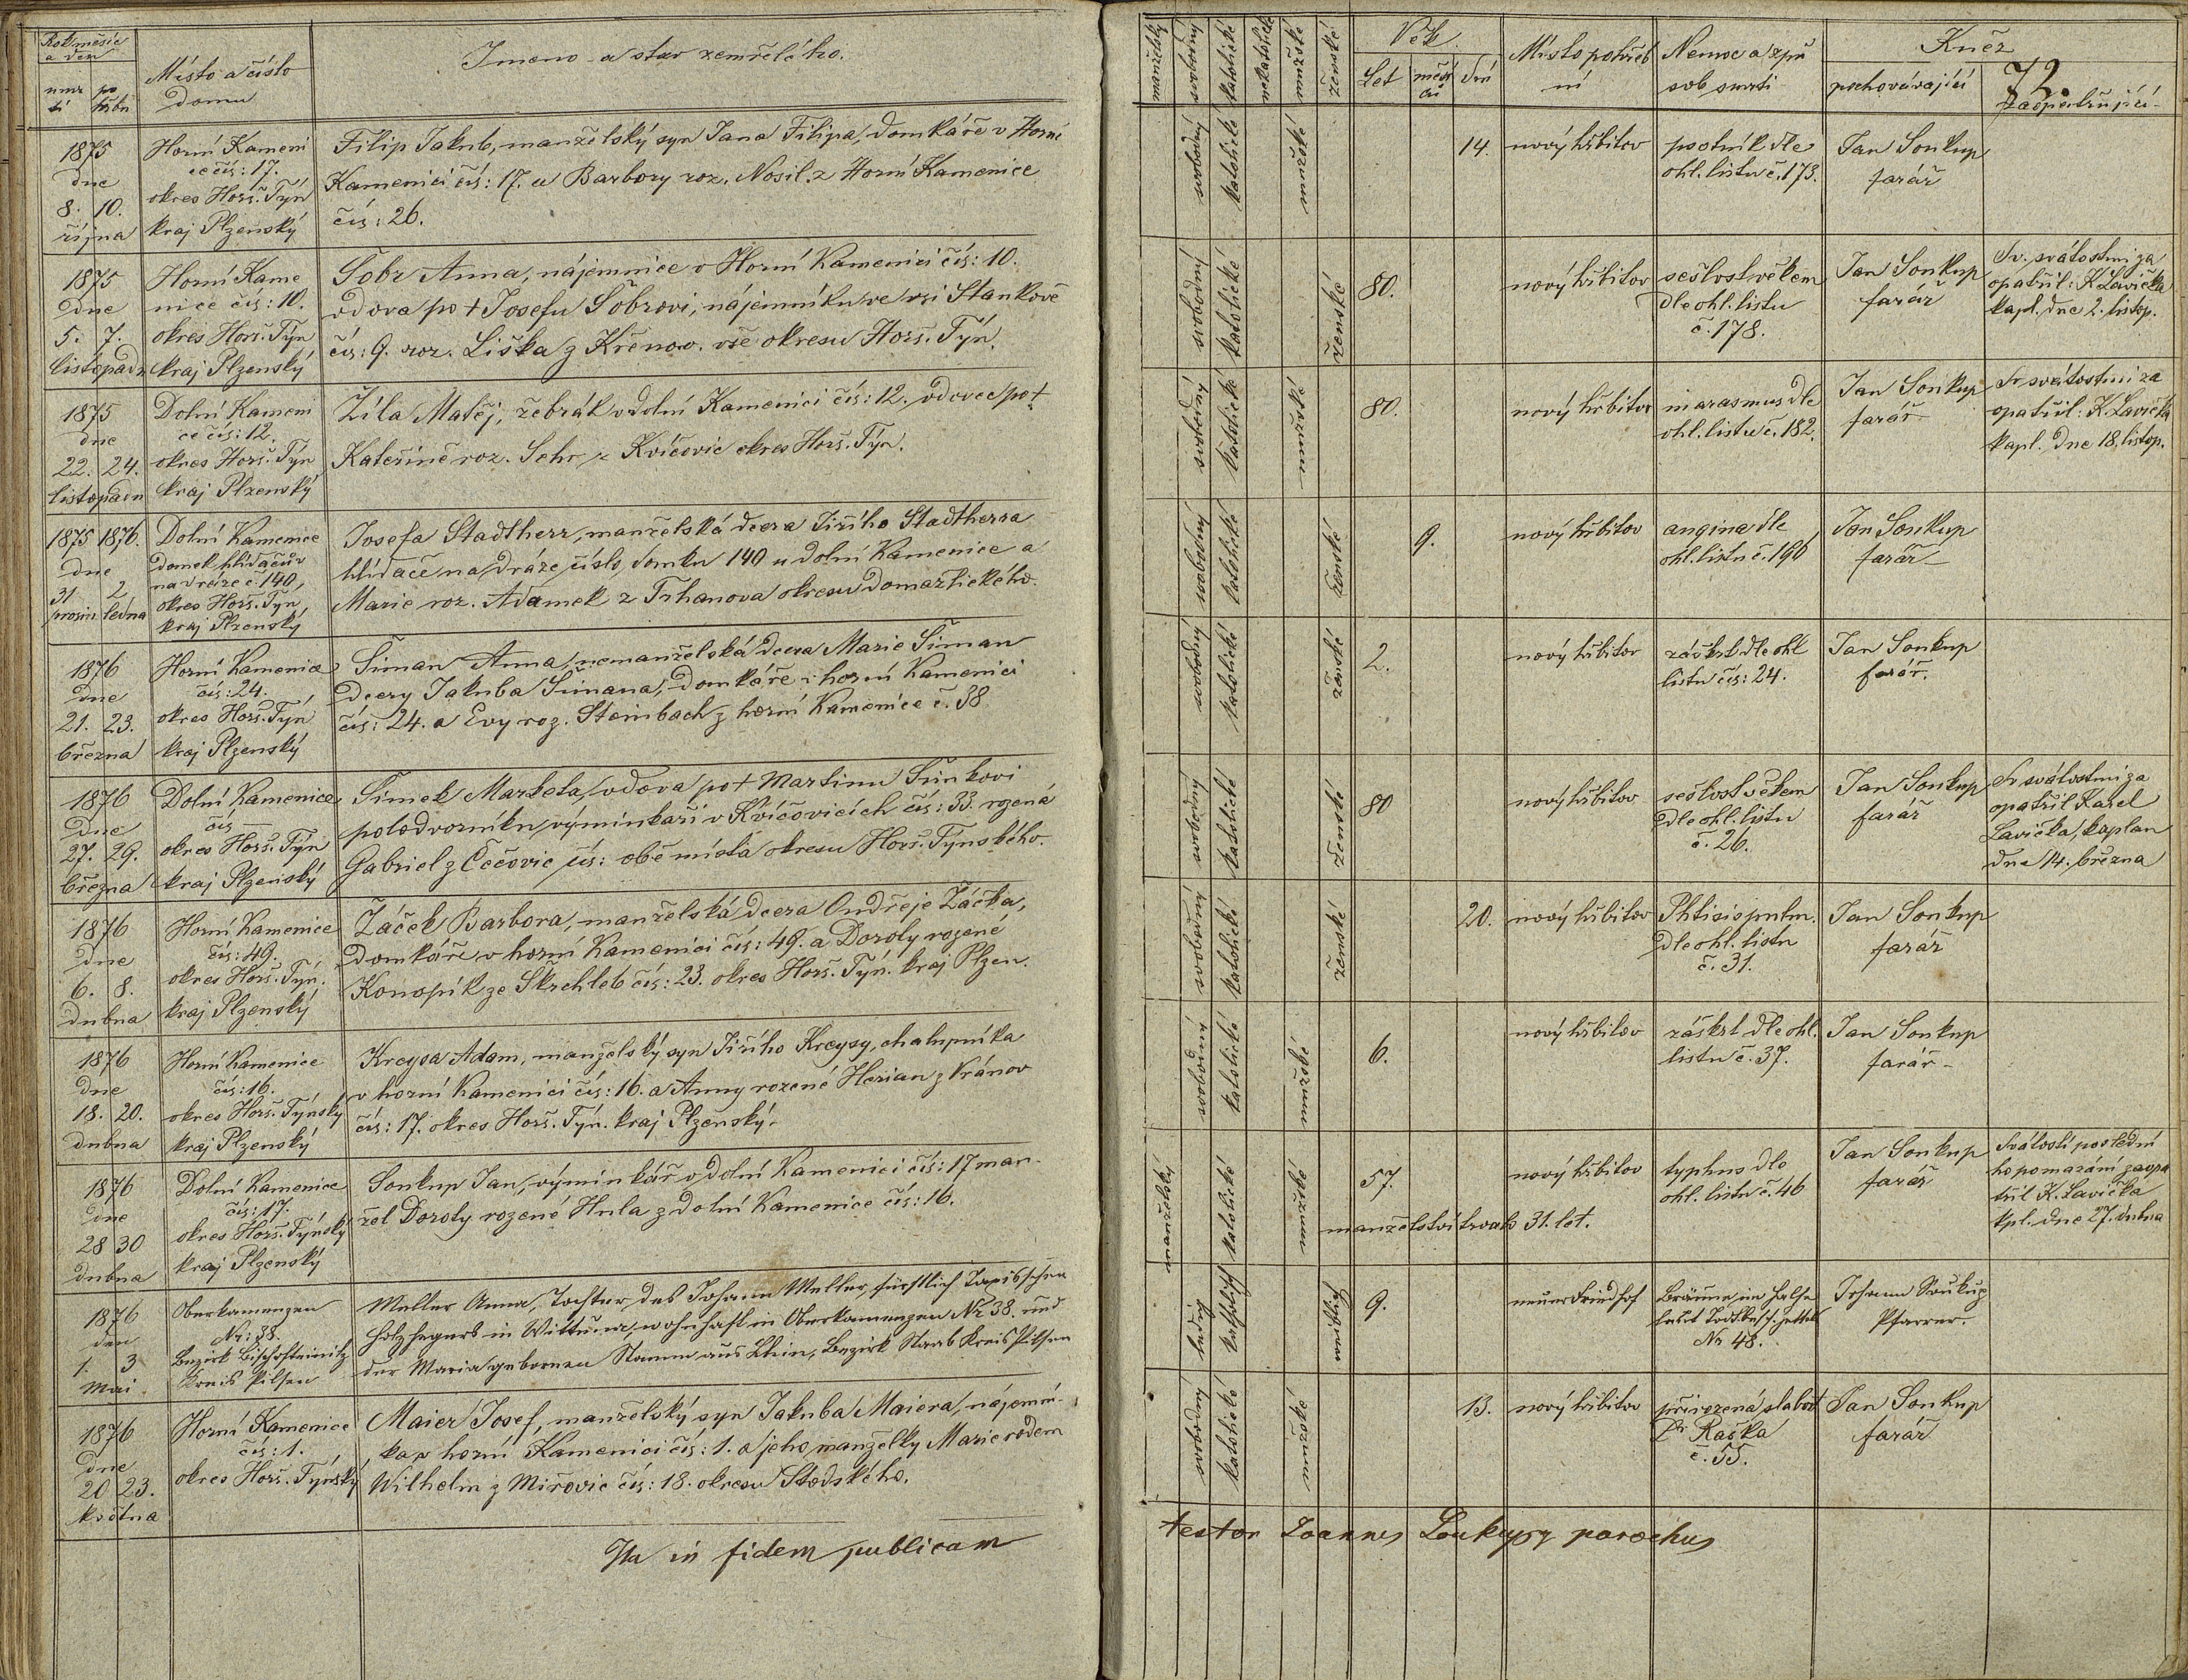 Rok měsíc
a den
Místo a číslo
domu
Jmeno a stav zemřelého.
umr
tí
po
hřbu
1875
dne
8. 10.
října
Horní Kameni
ce čís: 17.
okres Horš. Týn
kraj Plzenský
Filip Jakub, manželský syn Jana Filipa, domkáře v Horní
Kamenici čís: 17. a Barbory roz. Nosil. z Horní Kamenice
čís: 26.
1875
dne
5. 7.
listopadu
Horní Kame
nice čís: 10.
okres Horš. Týn
kraj Plzenský
Šobr Anna, nájemnice v Horní Kamenici čís: 10.
vdova po † Josefu Šobrovi, nájemníku ve vsi Stankově
čís: 9. roz. Liška z Křenov. vše okresu Horš. Týn.
1875
dne
22. 24.
listopadu
Dolní Kameni
ce čís: 12.
okres Horš. Týn
kraj Plzenský
Žila Matěj, žebrák v dolní Kamenici čís: 12. vdovec po †
Kateřině roz. Sehr z Kvíčovic okres Horš. Týn.
1875 1876.
dne
31 2
prosin ledna
Dolní Kamenice
domek hlídačův
na dráze č. 140,
okres Horš. Týn
kraj Plzenský
Josefa Stadtherr, manželská dcera Jiřího Stadtherra
hlídače na dráze číslo domku 140 u dolní Kamenice a
Marie roz. Adamek z Trhanova okresu Domažlického.
1876
dne
21. 23.
března
Horní Kamenice
čís: 24.
okres Horš. Týn
kraj Plzenský
Šiman Anna, nemanželská dcera Marie Šiman
dcery Jakuba Šimana, domkáře v horní Kamenici
čís: 24. a Evy roz. Steinbach z horní Kamenice č. 38
1876
dne
27. 29.
března
Dolní Kamenice
čís —
okres Horš. Týn
kraj Plzenský
Šimek Markéta, vdova po † Martinu Šimkovi
polodvorníku, výminkaři v Kvíčovicích čís: 33. rozená
Gabriel z Čečovic čís: obě místa okresu Horš. Týnského.
1876
dne
6. 8.
dubna
Horní Kamenice
čís: 49.
okres Horš. Týn.
kraj Plzenský
Žáček Barbora, manželská dcera Ondřeje Žáčka,
domkáře v horní Kamenici čís: 49. a Doroty rozené
Konopík ze Skrchleb čís: 23. okres Horš. Týn. kraj Plzen.
1876
dne
18. 20.
dubna
Horní Kamenice
čís: 16.
okres Horš. Týnský
kraj Plzenský
Kreysa Adam, manželský syn Jiřího Kreysy, chalupníka
v horní Kamenici čís: 16. a Anny rozené Herian z Vránov
čís: 17. okres Horš. Týn. kraj Plzenský.
1876
dne
28 30
dubna
Dolní Kamenice
čís: 17.
okres Horš. Týnský
kraj Plzenský
Soukup Jan, výminkář v dolní Kamenici čís: 17 man-
žel Doroty rozené Hula z dolní Kamenice čís: 16.
1876
den
1. 3
Mai
Oberkamenzen
Nr: 38.
Bezirk Bischofteinitz
Kreis Pilsen
Weller Anna, Tochter des Johann Weller, fürstlich
Holzhegers in Wittuna, wohnhaft in Oberkamenzen Nr 38. und
der Maria gebornen Stamm aus Lhin, Bezirk Staab Kreis Pilsen
1876
dne
20 23.
května
Horní Kamenice
čís: 1.
okres Horš. Týnský
Maier Josef, manželský syn Jakuba Maiera, nájemní-
ka v horní Kamenici čís: 1. a jeho manželky Marie rodem
Wilhelm z Mířovic čís: 18. okresu Stodského.
Ita in fidem publicam
manželský
svobodný
katolické
nekatolické
mužské
ženské
Věk
Let
měsí
ců
dní
Místo pohřeb
ní
Nemoc a způ
sob smrti
Kněz
pochovávající
72.
zaopatřující
svobodný katolické mužské
14.
nový hřbitov
psotník dle
ohl. listu č. 173.
Jan Soukup
farář
svobodný katolické ženské
80.
nový hřbitov
sešlost věkem
dle ohl. listu
č. 178.
Jan Soukup
farář
Sv. svátostmi za
opatřil: K Lavička
kapl. dne 2. listop.
svobodný katolické mužské
80.
nový hřbitov
marasmus dle
ohl. listu č. 182.
Jan Soukup
farář
Sv svátostmi za
opatřil: K. Lavička
kapl. dne 18. listop.
svobodný katolické ženské
9.
nový hřbitov
angina dle
ohl. listu č. 196
Jan Soukup
farář
svobodný katolické ženské
2.
nový hřbitov
záškrt dle ohl
listu čís: 24.
Jan Soukup
farář.
svobodný katolické ženské
80
nový hřbitov
sešlost věkem
dle ohl. listu
č. 26.
Jan Soukup
farář
Sv svátostmi za
opatřil Karel
Lavička, kaplan
dne 14. března
svobodný katolické ženské
20.
nový hřbitov
Phtisis pulm.
dle ohl. listu
č. 31.
Jan Soukup
farář
svobodný katolické mužské
6.
nový hřbitov
záškrt dle ohl.
listu č. 37.
Jan Soukup
farář
manželský katolické mužské
57.
nový hřbitov
typhus dle
ohl. listu č. 46
Jan Soukup
farář
Svátostí poslední
ho pomazání zaopa
třil K. Lavička
kpl. dne 27. dubna
manželství trvalo 31. let.
ledig katholisch weiblich
9.
neuer Friedhof
Bräune im Halse
laut Todt.besch.zettel
Nr 48.
Johann Soukup
Pfarrer.
svobodný katolické mužské
13.
nový hřbitov
přirozená slabost
Dr Raška
č. 55.
Jan Soukup
farář
testor Joannes Soukup parochus